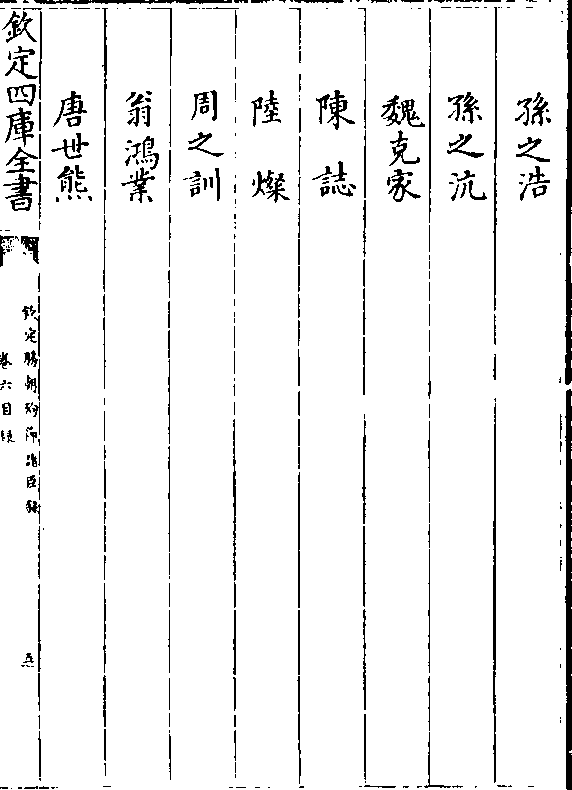 孫之浩
孫之沆
魏克家
陳誌
陸燦
周之訓
翁鴻業
唐世熊
欽定四庫全書
欽定勝朝殉節諸臣錄
卷六目録
五